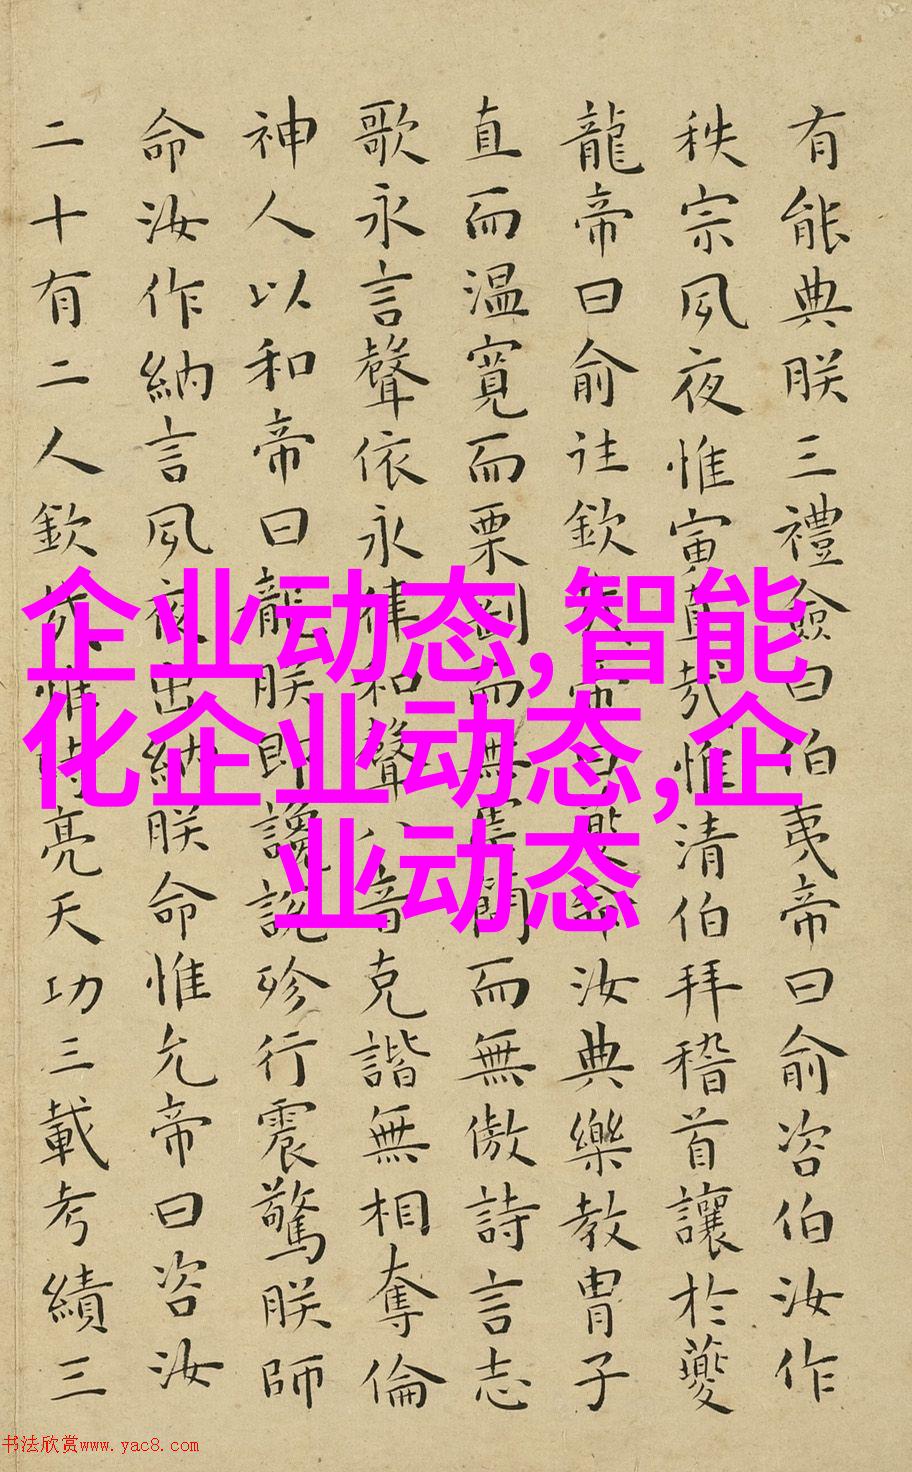 有能典朕三禮僉曰伯夷帝曰俞咨伯汝作
秩宗夙夜惟寅直哉惟清伯拜稽首讓於夔
龍帝曰俞往欽哉帝曰夔命汝典樂教冑子
直而温寛而栗剛而無虐簡而無傲詩言志
歌永言聲依永律和聲八音克諧無相奪倫
神人以和帝曰龍朕即讒説殄行震驚朕師
命汝作納言夙夜出納朕命惟允帝曰咨汝
二十有二人欽哉惟時亮天功三載考績三
企业动态,智能
化企业动态,企
业动态
书法欣赏www.yac8.com